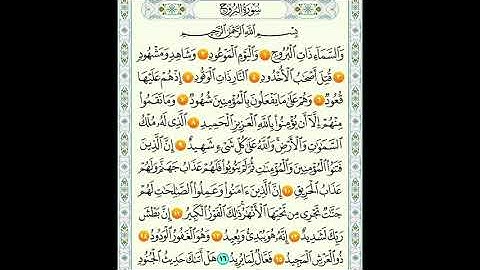 سُورَةُ البُرُوجِ
بِسْمِ اللَّهِ الرَّحْمَٰنِ الرَّحِيمِ
وَالسَّمَاءِ ذَاتِ الْبُرُوجِ ١ وَالْيَوْمِ الْمَوْعُودِ ٢ وَشَاهِدٍ وَمَشْهُودٍ
٣ قُتِلَ أَصْحَابُ الْأُخْدُودِ ٤ النَّارِ ذَاتِ الْوَقُودِ ٥ إِذْ هُمْ عَلَيْهَا
قُعُودٌ ٦ وَهُمْ عَلَىٰ مَا يَفْعَلُونَ بِالْمُؤْمِنِينَ شُهُودٌ ٧ وَمَا نَقَمُوا
مِنْهُمْ إِلَّا أَن يُؤْمِنُوا بِاللَّهِ الْعَزِيزِ الْحَمِيدِ ٨ الَّذِي لَهُ مُلْكُ
السَّمَٰوَٰتِ وَالْأَرْضِ وَاللَّهُ عَلَىٰ كُلِّ شَيْءٍ شَهِيدٌ ٩ إِنَّ الَّذِينَ
فَتَنُوا الْمُؤْمِنِينَ وَالْمُؤْمِنَٰتِ ثُمَّ لَمْ يَتُوبُوا فَلَهُمْ عَذَابُ جَهَنَّمَ وَلَهُمْ
عَذَابُ الْحَرِيقِ ١٠ إِنَّ الَّذِينَ ءَامَنُوا وَعَمِلُوا الصَّٰلِحَٰتِ لَهُمْ
جَنَّٰتٌ تَجْرِي مِن تَحْتِهَا الْأَنْهَٰرُ ذَٰلِكَ الْفَوْزُ الْكَبِيرُ ١١ إِنَّ بَطْشَ
رَبِّكَ لَشَدِيدٌ ١٢ إِنَّهُ هُوَ يُبْدِئُ وَيُعِيدُ ١٣ وَهُوَ الْغَفُورُ الْوَدُودُ ١٤
ذُو الْعَرْشِ الْمَجِيدُ ١٥ فَعَّالٌ لِّمَا يُرِيدُ ١٦ هَلْ أَتَىٰكَ حَدِيثُ الْجُنُودِ